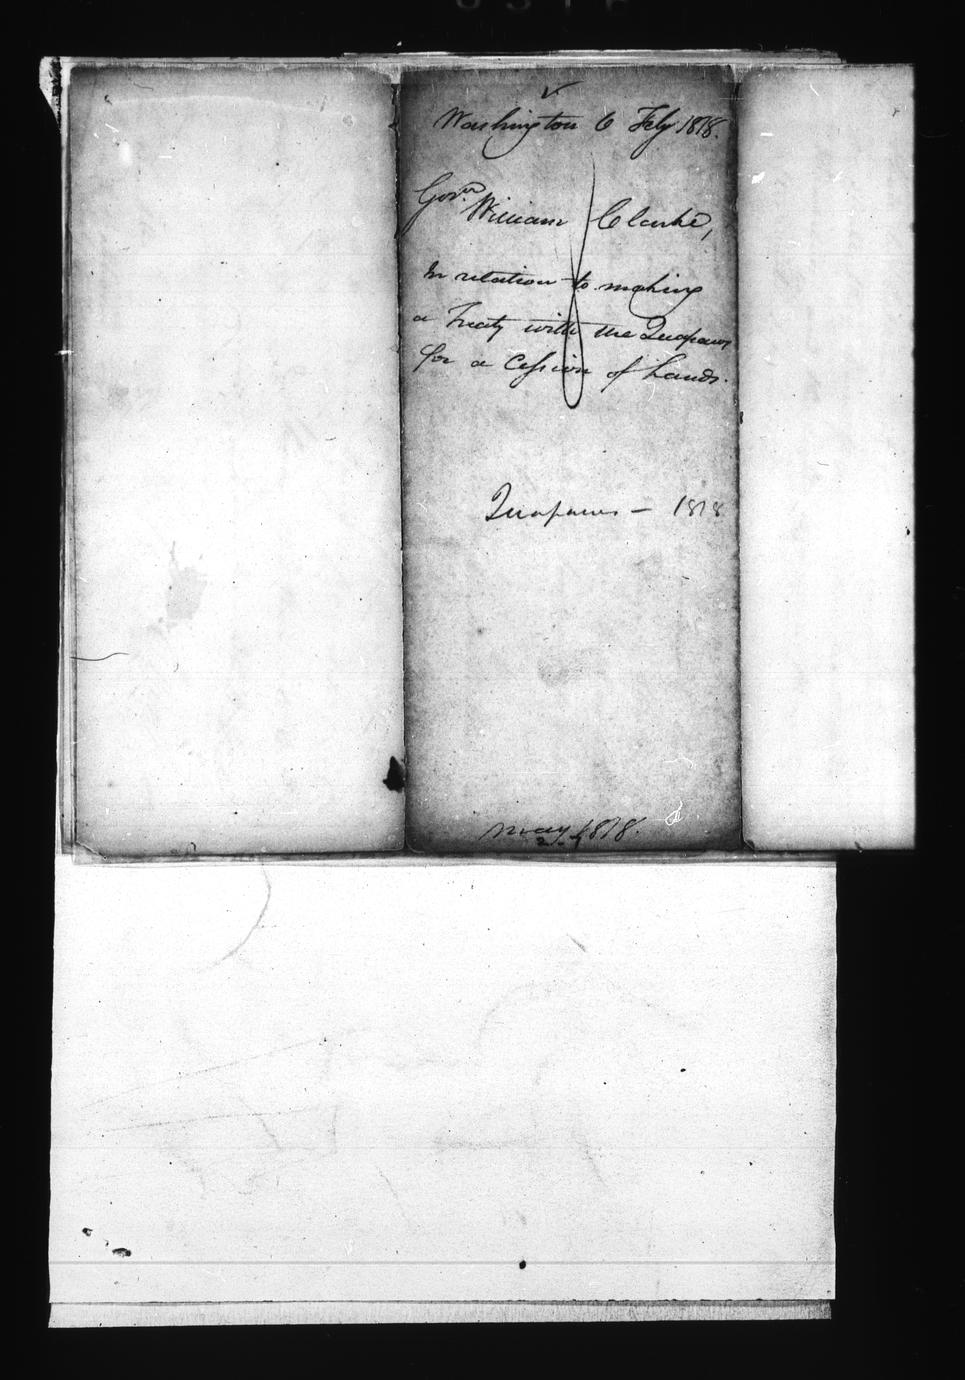 Washington 6 Feby 1818.
Govr. William Clarke,
In relation to making
a Treaty with the Quapaws
for a Cession of Lands.
Quapaws - 1818
May 1818.